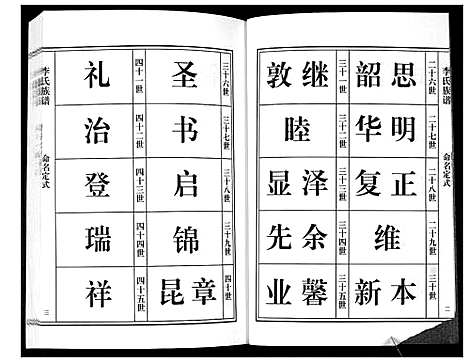 李氏族谱 命名定式 二
二十六世 思韶
二十七世 明华
二十八世 正复
二十九世 维
三十世 本新
三十一世 继敦
三十二世 睦
三十三世 泽显
三十四世 余先
三十五世 馨业
三十六世 圣
三十七世 书
三十八世 启
三十九世 锦
四十世 章昆
四十一世 礼
四十二世 治
四十三世 登
四十四世 瑞
四十五世 祥
李氏族谱 命名定式 三